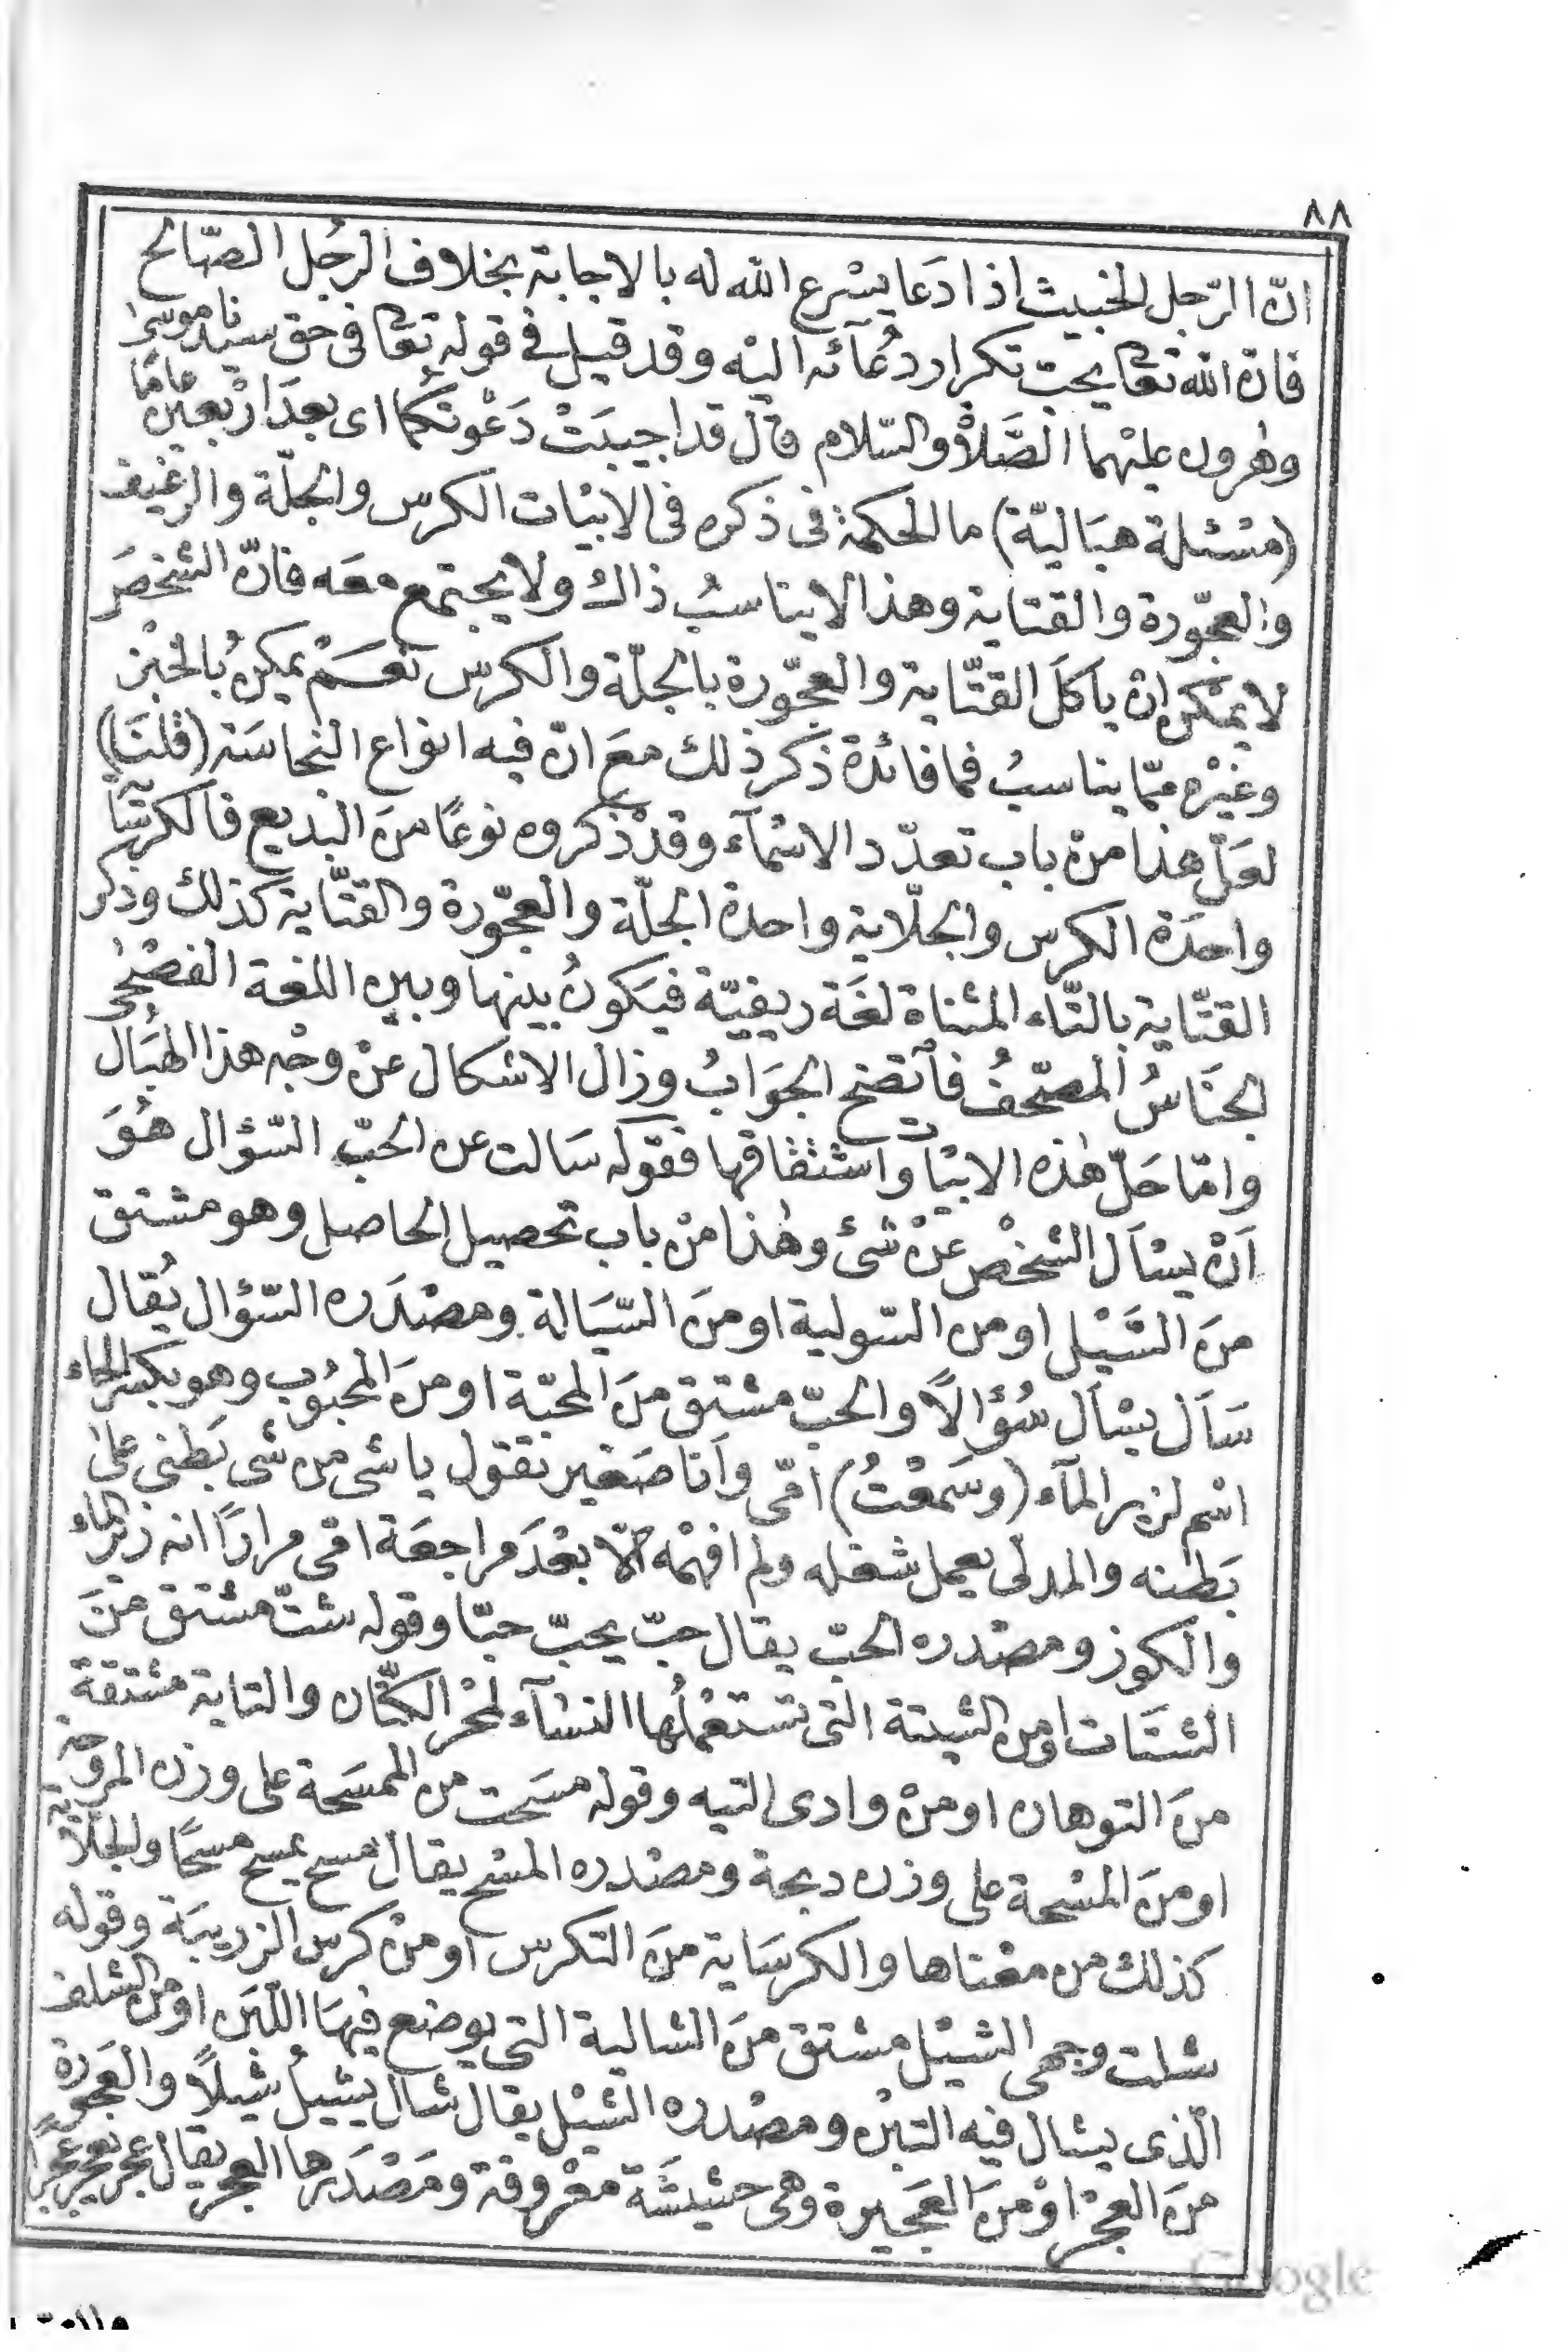 ٨٨
انّ الرّجل الخبيث اذا دَعا يسْرع الله له بالاجابة بخلاف الرجُل الصّالح
فانّ الله تعا يحبّ تكرار دعَآئه اليْه وقد قيل فى قوله تعا فى حق سيدنا موسى
وهرون عليْهما الصَّلاة والسّلام قال قد اجيبَتْ دَعْوتكُما اى بعدَ ارْبعينَ عامًا
(مسْئلة هبَاليّة) ما الحكمة فى ذكره فى الابيْات الكرس والجلّة والرغيف
والعجّورة والقتاية وهذا لا يناسبُ ذاك ولا يجتمع معَه فانّ الشخصَ
لا يمْكن ان ياكلَ القتّاية والعجّورة بالجلّة والكرس نعَمْ يمكنُ بالخبْز
وغيْره ممّا يناسبُ فما فائدة ذكر ذلك معَ انّ فيه انواع النجاسَة (قلنَا)
لعَلّ هذا منْ باب تعدّد الاسْمآء وقدْ ذكروه نوعًا منَ البديع فالكرسَآية
واحدَة الكرس والجلّاية واحدة الجلّة والعجّورة والقتّاية كذلك وذكر
القتّاية بالتّاء المثناة لغَة ريفيّة فيَكونُ بينها وبين اللغة الفصْحى
الجنَاسُ المصحّفُ فآتضح الجوَابُ وزال الاشكال عنْ وجْه هذا الهبَال
وامّا حَلّ هٰذه الابيْات واشْتقاقها فقوله سَالت عن الحبّ السّؤال هُوَ
اَنْ يسْاَل الشخْص عنْ شئ وهٰذا منْ باب تحصيل الحاصل وهو مشتق
منَ السَّيْل او من السّولية او منَ السّيَالة ومصْدَره السّؤال يُقال
سَاَل يسْاَل سُؤالاً والحبّ مشْتق منَ المحبّة او منَ المحبُوب وهو بكسْر الحاء
اسْم لزير المآء (وسَمعْتُ) امّى واَنا صَغير تقول يا شى من شى بَطنى على
بَطنه والمدلّى يعمل شغله ولم افهمْه الّا بعْدَ مراجعَة امّى مرارًا انه زير الماء
والكوز ومصْدره الحبّ يقال حبّ يحبّ حبّا وقوله شتّ مشتق منَ
الشتَات او من الشيتة التى تستعْملُها النسَآء لمخْر الكتّان والتاية مشتقة
منَ التوهان او منْ وادى التيه وقوله مسَحت من الممسَحة على وزن المروحة
او منَ المسْحة على وزن دبحة ومصْدره المسْح يقال مسح يمسح مسحًا والجلّاية
كذلك من معْناها والكرسَاية منَ التكرس او منْ كرس الزريبَة وقوله
شلت وجهى الشيْل مشتق منَ الشالية التى يوضع فيهَا اللّبن او من الشلف
الّذى يشال فيه التبْن ومصْدره الشيْل يقال شال يشيلُ شيلاً والعَجورة
منَ العجرْ اوْ منَ العَجيرة وهى حشيشَة معْروفة ومَصْدَرها العجر يقال عجر يعجر عجْرًا